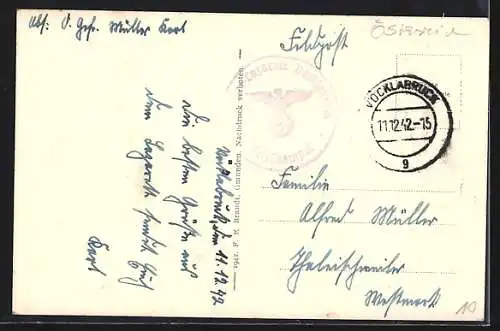 Abs: O. Gefr. Müller Karl
Feldpost
Österreich
VÖCKLABRUCK
11.12.42-15
g
Vöcklabruck, den 11.12.42
Die besten Grüße aus
dem Lazarett sendet Euch
Karl
1942. F. E. Brandt, Gmunden. Nachdruck verboten.
Familie
Alfred Müller
Thaleischweiler
Westmark
10